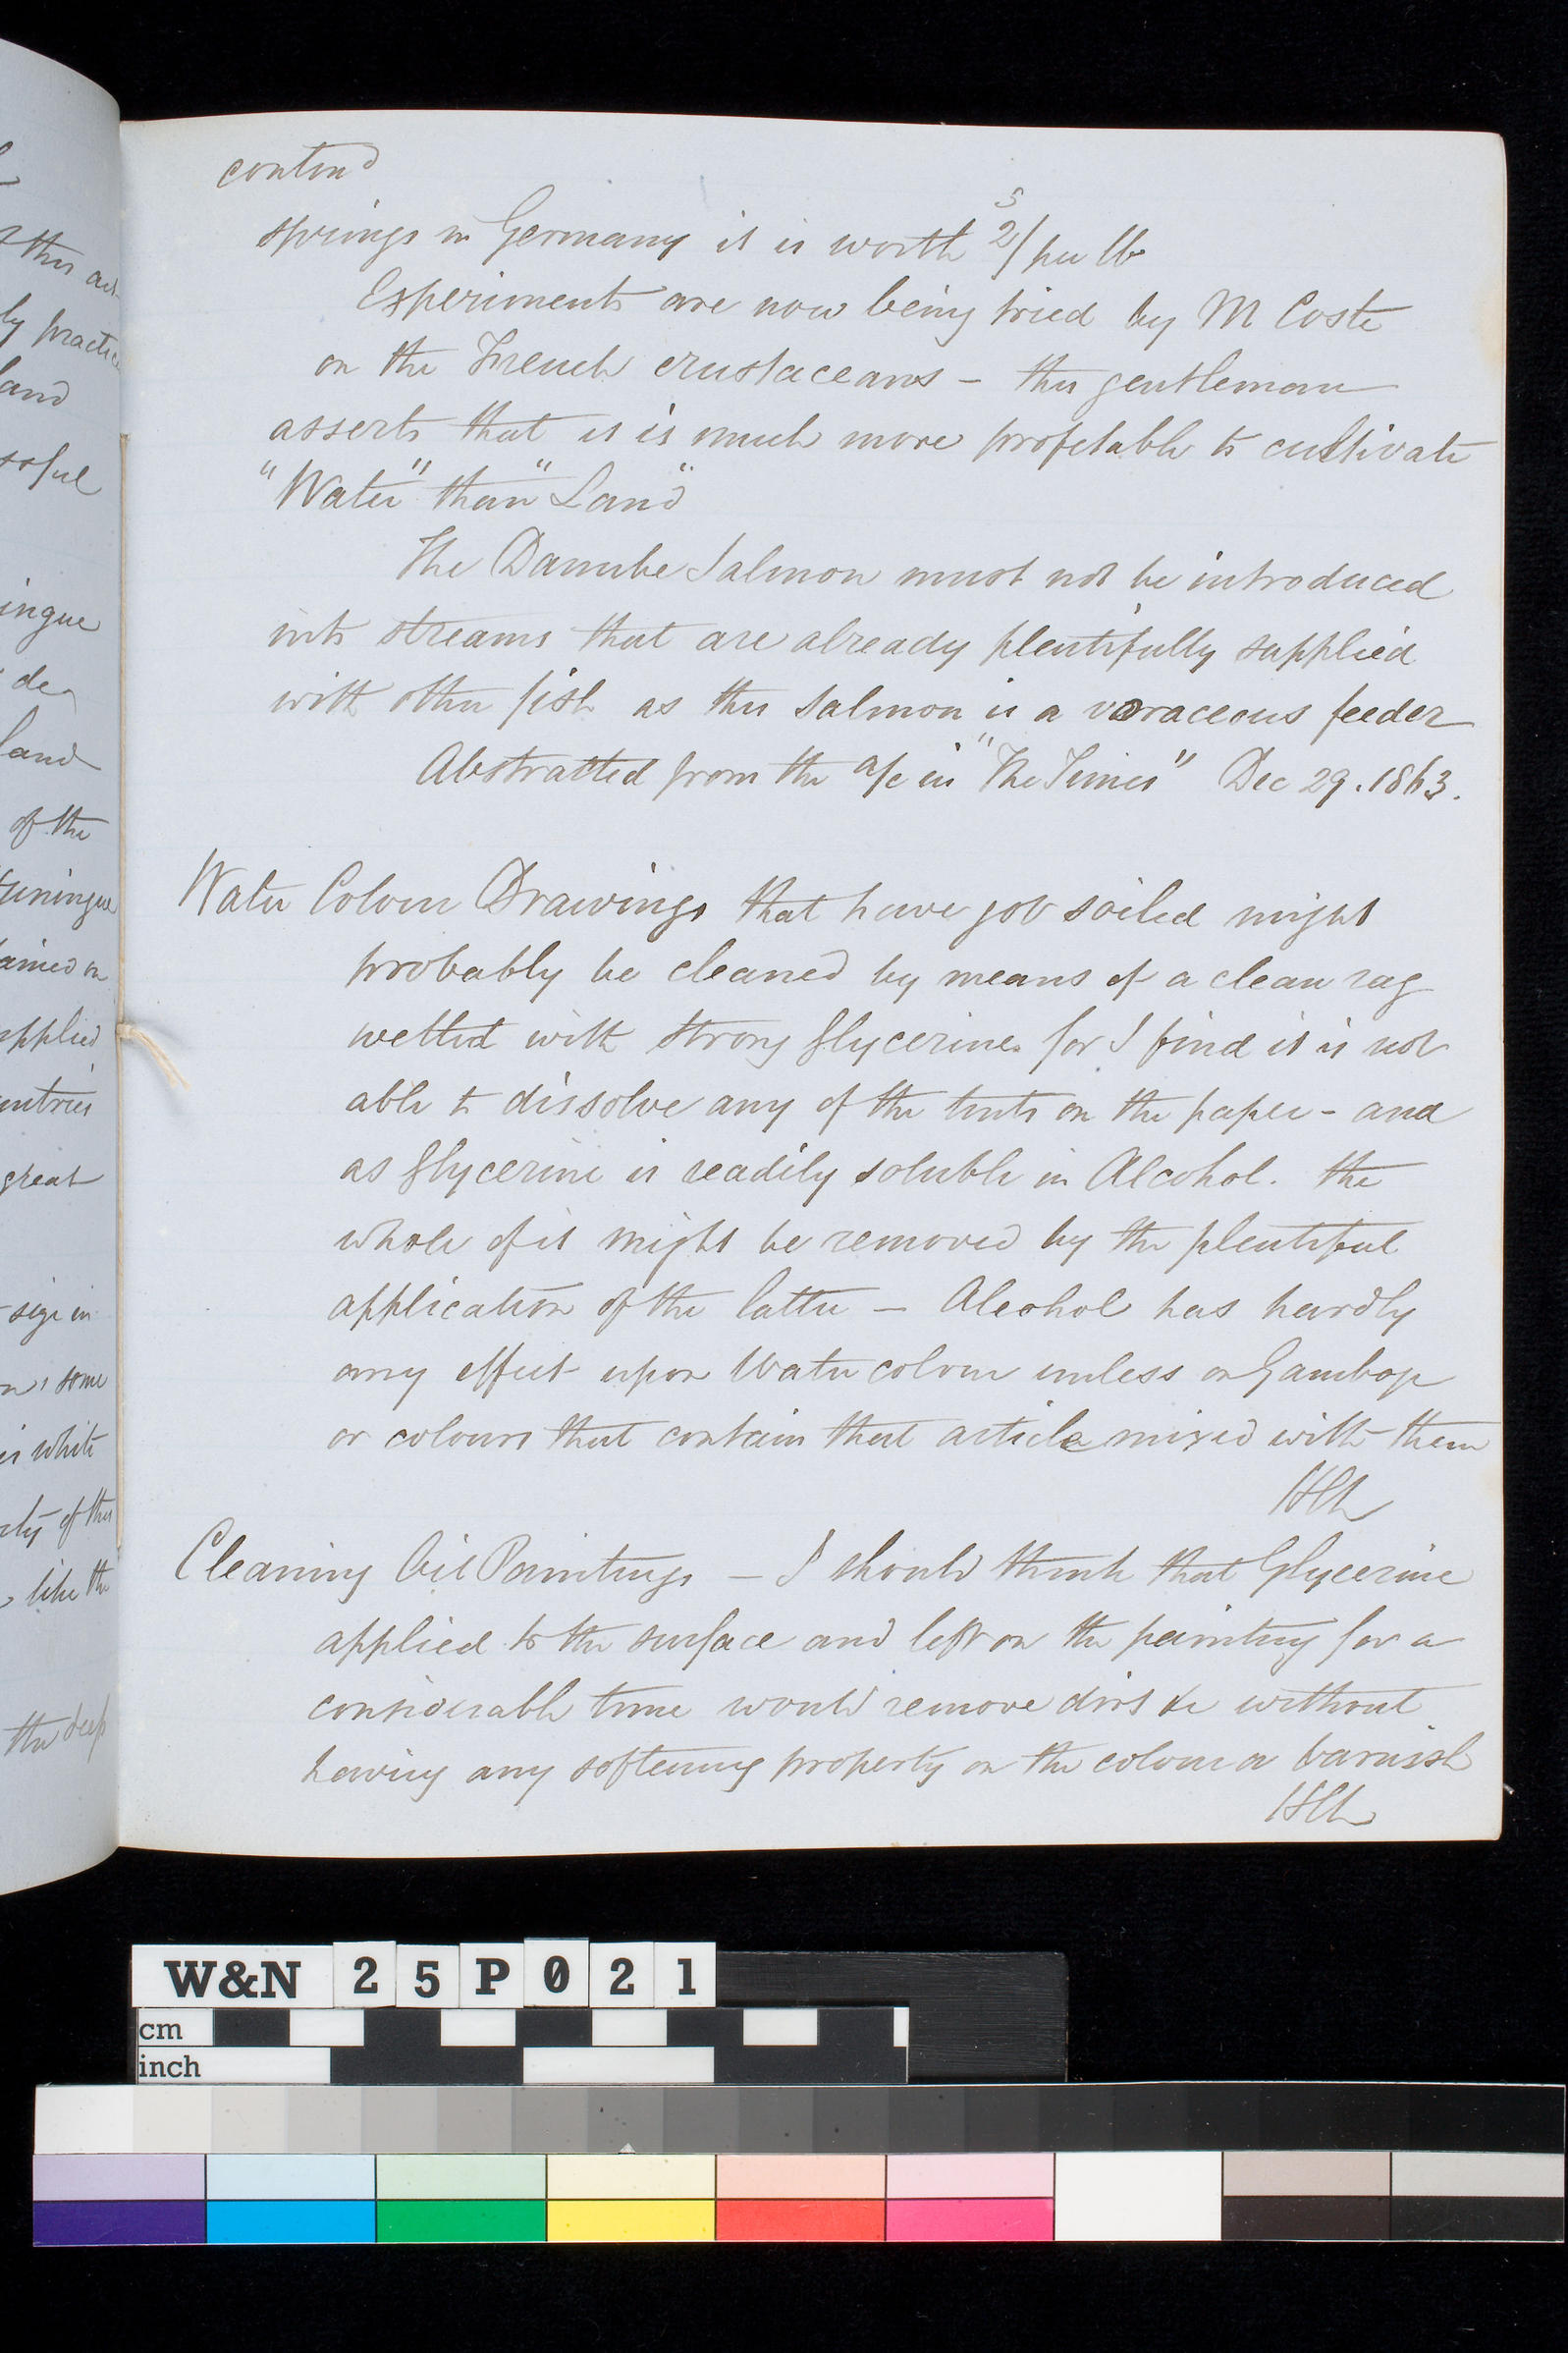 contind
springs in Germany it is worth 2s/ per lb
Experiments are now being tried by M Coste
on the French crustaceans - this gentleman
asserts that it is much more profitable to cultivate
"Water" than "Land"
The Danube Salmon must not be introduced
into streams that are already plentifully supplied
with other fish as this salmon is a voraceous feeder
Abstratted from the a/c in "The Times" Dec 29. 1863.
Water Colour Drawings that have got soiled might
probably be cleaned by means of a clean rag
wetted with strong Glycerine for I find it is not
able to dissolve any of the tints on the paper - and
as Glycerine is readily soluble in Alcohol. the
whole of it might be removed by the plentiful
application of the latter - Alcohol has hardly
any effect upon Water colour unless on Gamboge
or colours that contain that article mixed with them
Cleaning Oil Paintings - I should think that Glycerine
applied to the surface and left on the painting for a
considerable time would remove dirt &c without
having any softening property on the colour or varnish
this
ly practice
land
ssful
ingue
de
land
of the
uningue
ained on
applied
untries
great
size in
some
is white
of this
like the
the deep
W&N 25P021
cm
inch